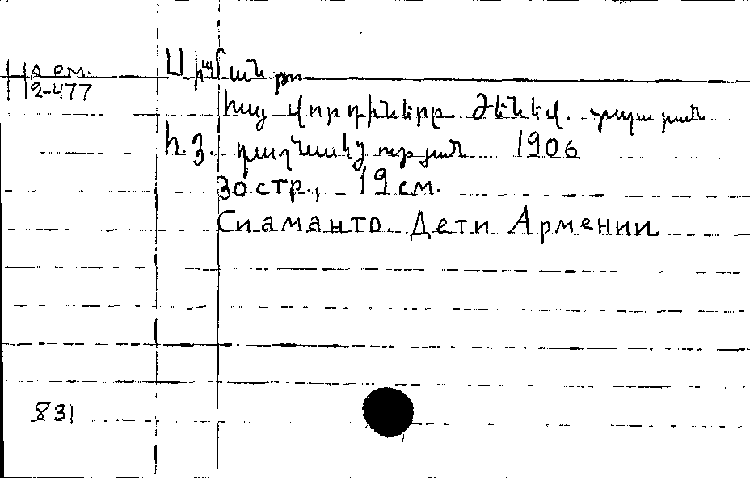 На ем.
2-477
Սիամանթօ
հայ վորդիները Ժենեվ. տպարան
Հ.Յ. դաշնակցության 1906
30 стр., 19 см.
Сиаманто Дети Армении
831